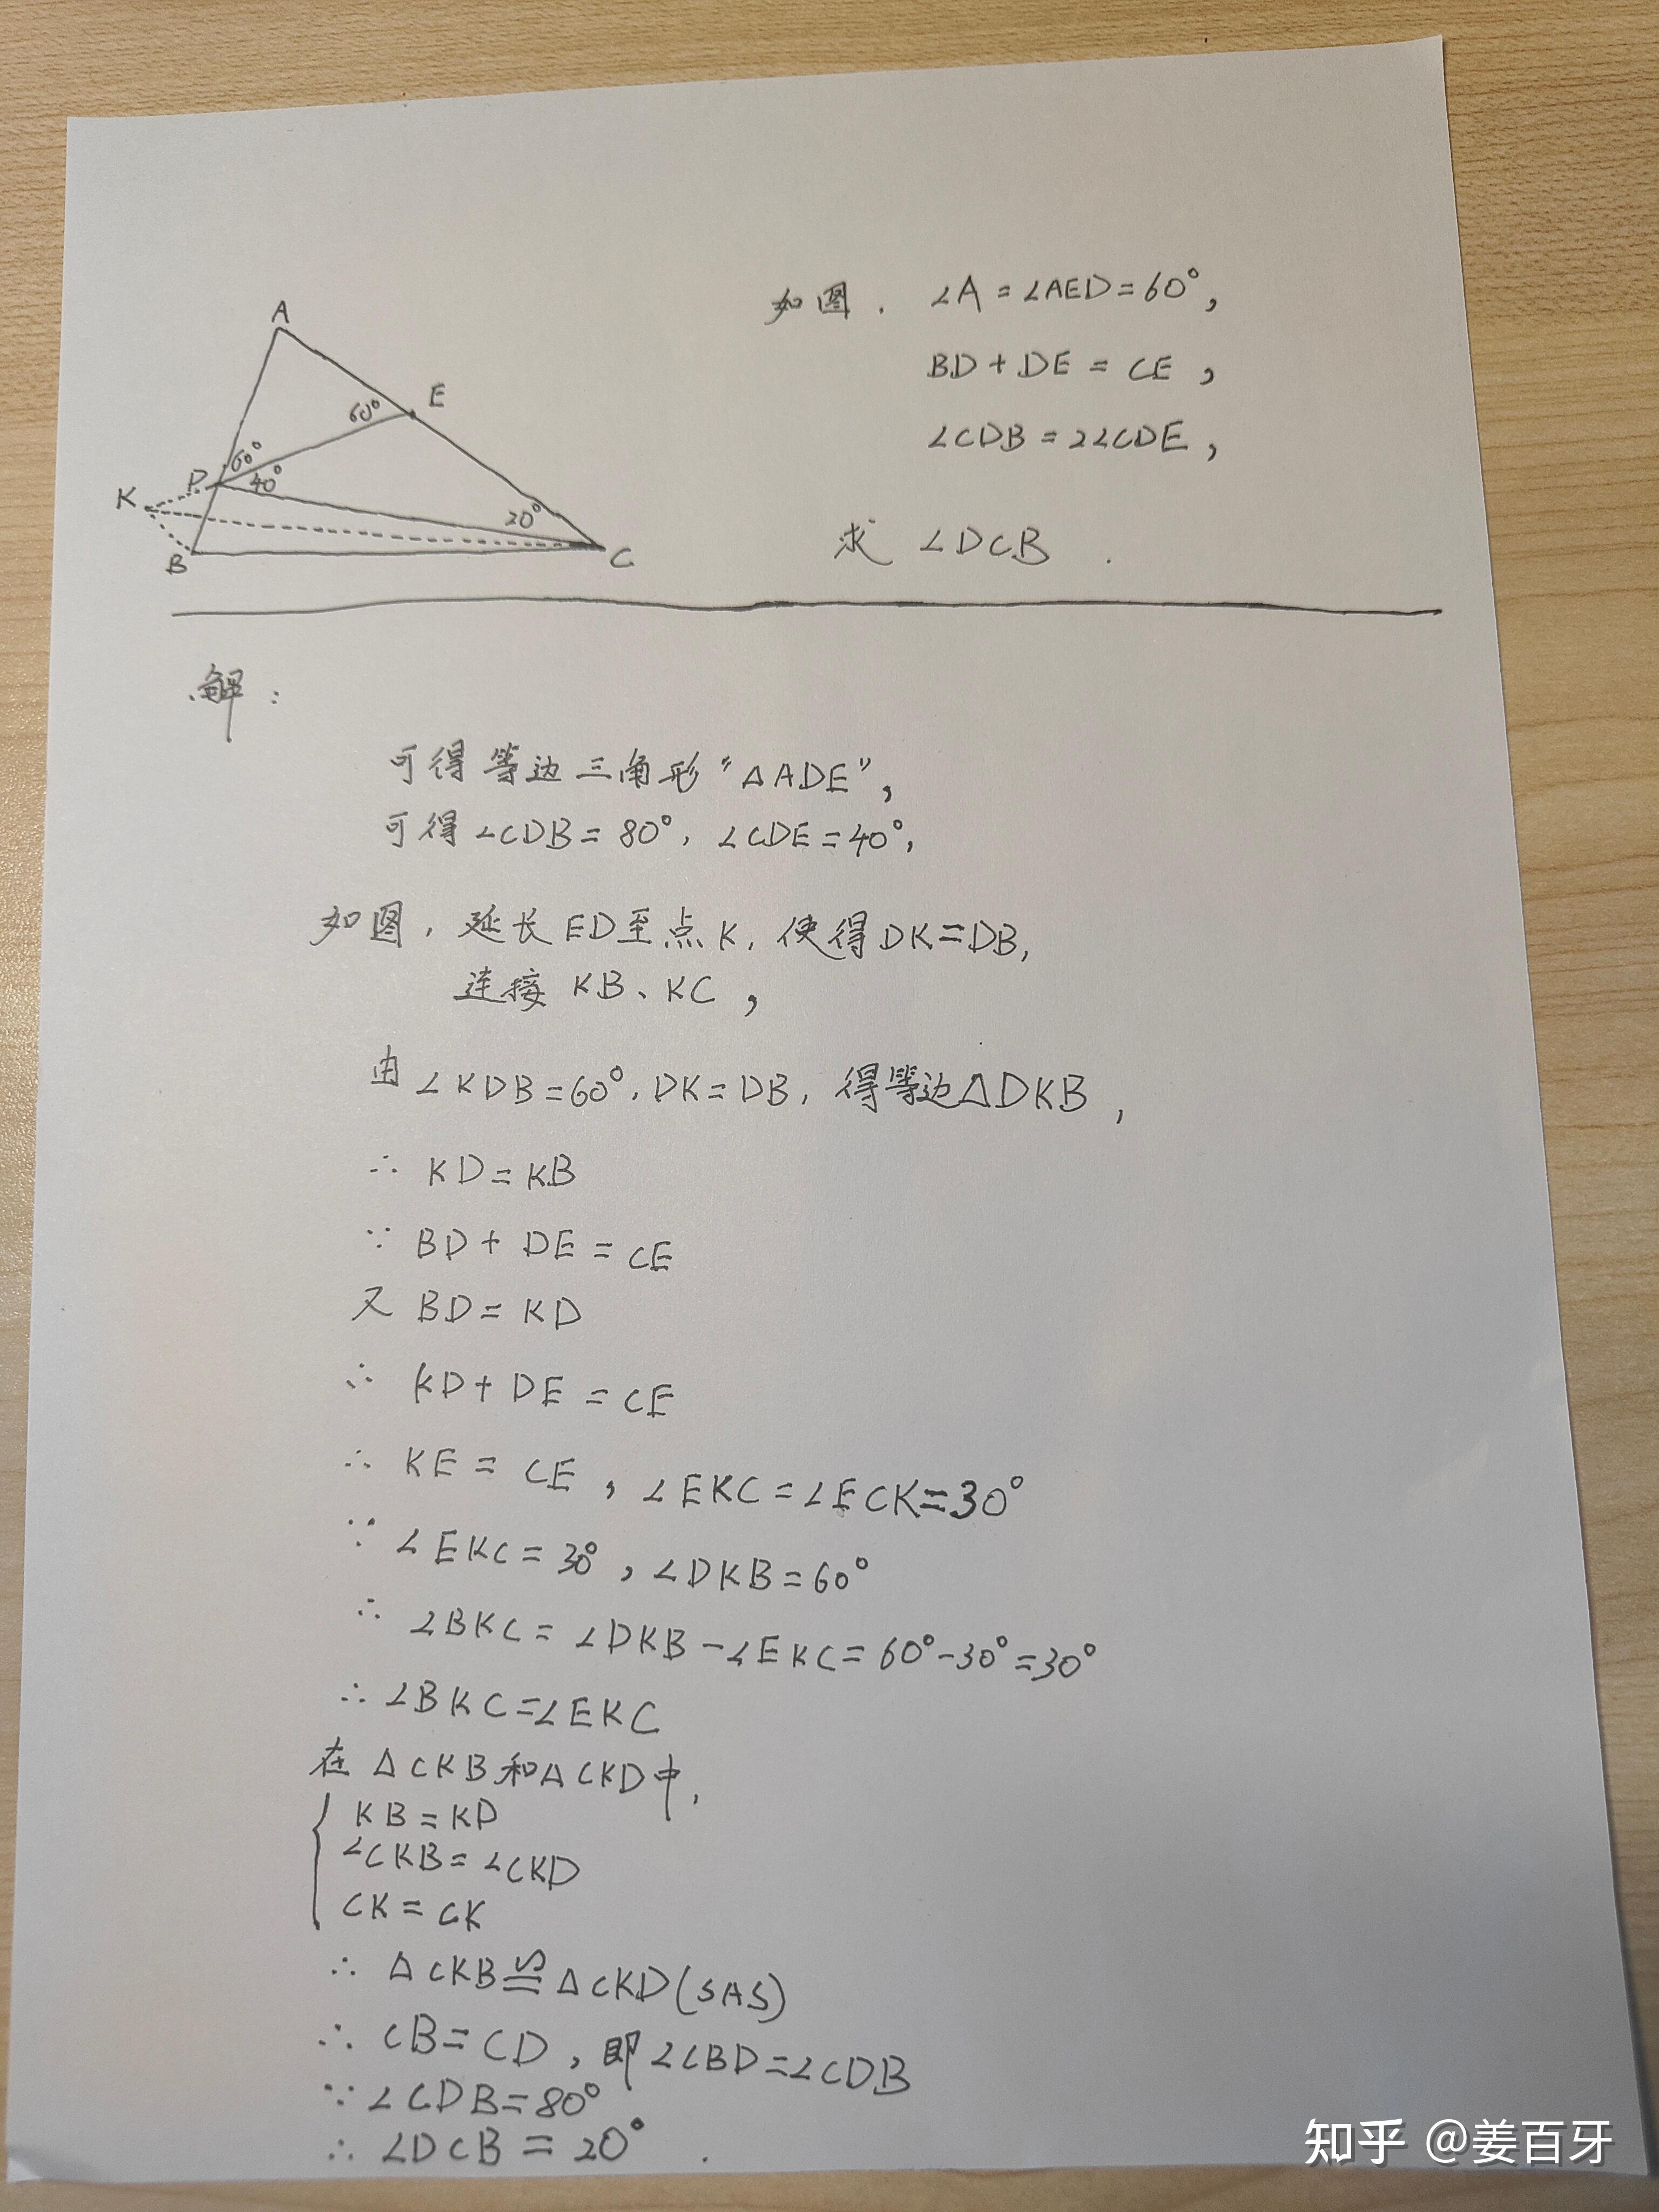 如图. ∠A=∠AED=60°,
BD+DE=CE,
∠CDB=2∠CDE,
求 ∠DCB.
A
E
60°
60°
D
40°
K
20°
B
C
解:
可得等边三角形"△ADE",
可得∠CDB=80°, ∠CDE=40°,
如图, 延长ED至点K, 使得DK=DB,
连接 KB、KC,
由∠KDB=60°, DK=DB, 得等边△DKB,
∴ KD=KB
∵ BD+DE=CE
又 BD=KD
∴ KD+DE=CE
∴ KE=CE, ∠EKC=∠ECK=30°
∵ ∠EKC=30°, ∠DKB=60°
∴ ∠BKC=∠DKB-∠EKC=60°-30°=30°
∴ ∠BKC=∠EKC
在△CKB和△CKD中,
KB=KD
∠CKB=∠CKD
CK=CK
∴ △CKB≌△CKD(SAS)
∴ CB=CD, 即∠CBD=∠CDB
∵ ∠CDB=80°
∴ ∠DCB=20°.
知乎 @姜百牙